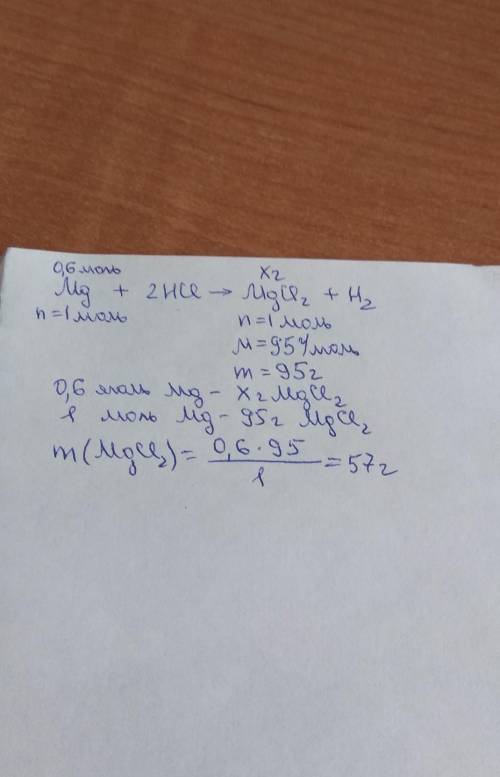 0,6 моль xг
Mg + 2HCl → MgCl₂ + H₂
n=1моль n=1моль
M=95г/моль
m=95г
0,6 моль Mg - xг MgCl₂
1 моль Mg - 95г MgCl₂
m(MgCl₂) = 0,6·95 / 1 = 57г